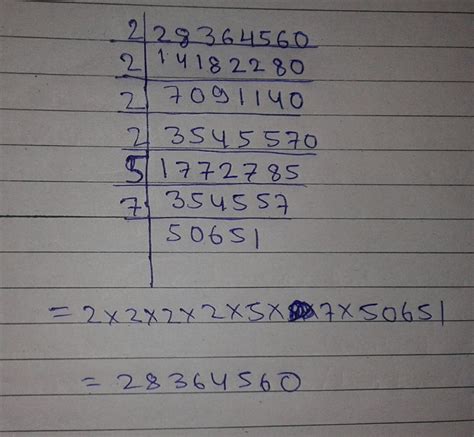 2 28364560
2 14182280
2 7091140
2 3545570
5 1772785
7 354557
50651
= 2×2×2×2×5×7×50651
= 28364560